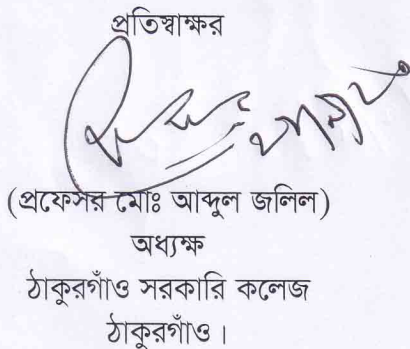 প্রতিস্বাক্ষর
(প্রফেসর মোঃ আব্দুল জলিল)
অধ্যক্ষ
ঠাকুরগাঁও সরকারি কলেজ
ঠাকুরগাঁও।